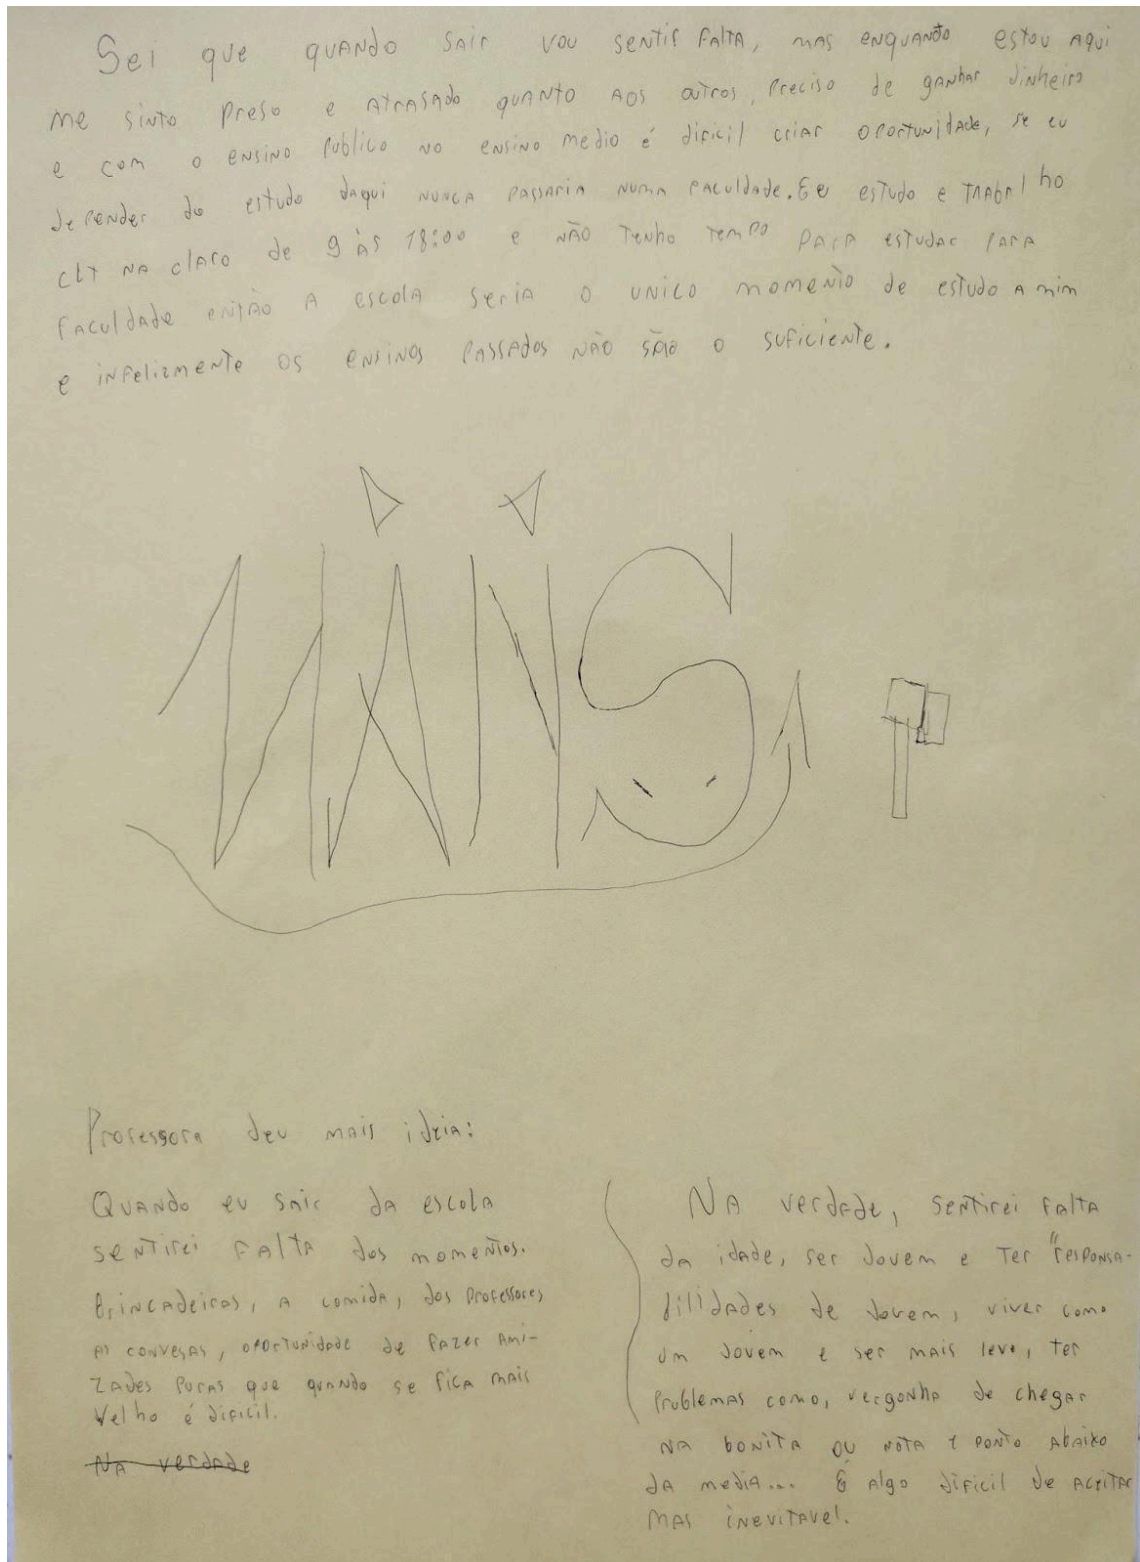 Sei que quando sair vou sentir falta, mas enquanto estou aqui
me sinto preso e atrasado quanto aos outros, preciso de ganhar dinheiro
e com o ensino publico no ensino medio é dificil criar oportunidade, se eu
depender do estudo daqui nunca passaria numa faculdade. Eu estudo e trabalho
clt na claro de 9 às 18:00 e não tenho tempo para estudar para
faculdade então a escola seria o unico momento de estudo a mim
e infelizmente os ensinos passados não são o suficiente.
Professora deu mais ideia:
Quando eu sair da escola
sentirei falta dos momentos.
Brincadeiras, a comida, dos professores,
as convesas, oportunidade de fazer ami-
zades puras que quando se fica mais
velho é dificil.
Na verdade
Na verdade, sentirei falta
da idade, ser jovem e ter "responsa-
bilidades de jovem, viver como
um jovem e ser mais leve, ter
problemas como, vergonha de chegar
na bonita ou nota 1 ponto abaixo
da media... É algo dificil de aceitar
mas inevitavel.